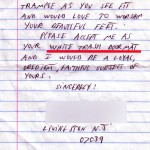 TRAMPLE AS YOU SEE FIT
AND WOULD LOVE TO WORSHIP
YOUR BEAUTIFUL FEET.
PLEASE ACCEPT ME AS
YOUR WHITE TRASH DOORMAT
AND I WOULD BE A LOYAL,
OBEDIENT, FAITHFUL SUBJECT OF
YOURS.
SINCERELY!
LIVINGSTON N.J
07039